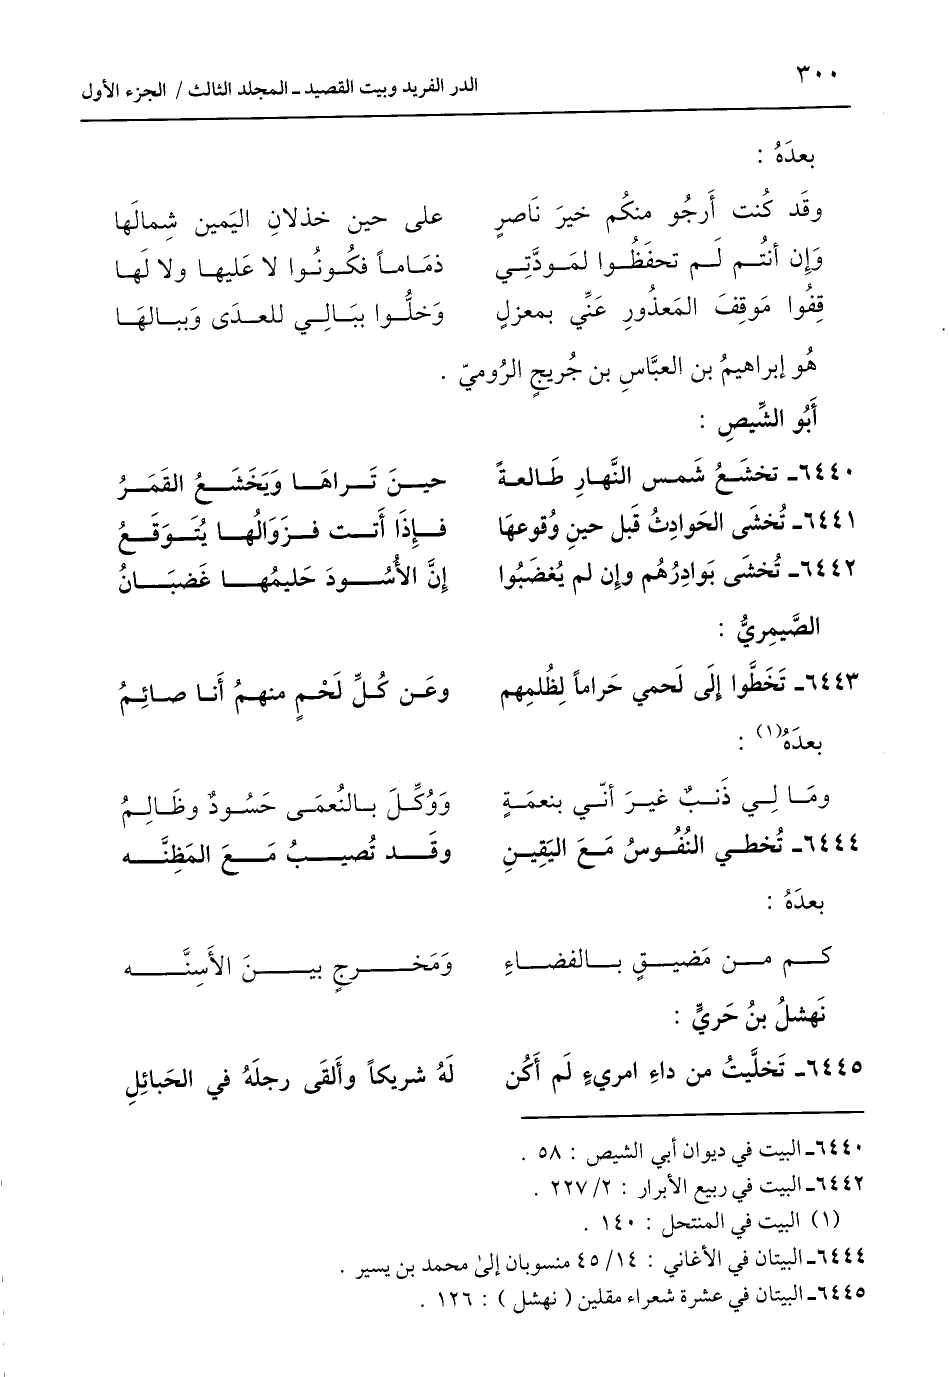 ٣٠٠
الدر الفريد وبيت القصيد ـ المجلد الثالث / الجزء الأول
بعدَهُ :
وقَد كُنت أَرجُو منكُم خيرَ نَاصرٍ على حين خذلانِ اليَمين شِمالَها
وَإن أنتُـم لَـم تحفَظُـوا لمَـودَّتِـي ذمَـامـاً فكُـونُـوا لا عَليهـا ولا لَهـا
قِفُوا مَوقِفَ المَعذُورِ عَنِّي بمعزلٍ وَخلُّـوا بيَـالِـي للعـدَى وَبيـالهَـا
هُو إبراهيمُ بن العبَّاسِ بن جُريجٍ الرُوميّ .
أَبُو الشِّيصِ :
٦٤٤٠ـ تخشَـعُ شَمـس النَّهـارِ طَـالعـةً حيـنَ تَـراهَـا وَيَخَشَـعُ القَمَـرُ
٦٤٤١ـ تُخشَى الحَوادِثُ قَبل حينِ وُقوعهَا فـإِذَا أَتـت فـزَوَالُهـا يُتَـوَقَـعُ
٦٤٤٢ـ تُخشَى بَوادِرُهُم وإن لم يُغضَبُوا إنَّ الأُسُـودَ حَليمُهـا غَضبَـانُ
الصَّيمِريُّ :
٦٤٤٣ـ تَخَطَّوا إلَى لَحمي حَراماً لِظُلمِهم وعَـن كُـلِّ لَحْـمٍ منهـمُ أَنـا صـائِـمُ
بعدَهُ(١) :
ومَـا لِـي ذَنـبٌ غيـرَ أنّـي بنعمَـةٍ وَوُكِّـلَ بـالنُعمَـى حَسُـودٌ وظَـالِـمُ
٦٤٤٤ـ تُخطـي النُفُـوسُ مَـعَ اليَقيـنِ وقَـد تُصيـبُ مَـعَ المَظِنَّـه
بعدَهُ :
كـم مـن مَضيـقٍ بـالفضـاءِ وَمَخـرجٍ بيـنَ الأَسِنَّـه
نَهشلُ بنُ حَريٍّ :
٦٤٤٥ـ تَخلَّيتُ من داءِ امريءٍ لَم أَكُن لَهُ شريكاً وأَلقَى رجلَهُ في الحَبائلِ
٦٤٤٠ـ البيت في ديوان أبي الشيص : ٥٨ .
٦٤٤٢ـ البيت في ربيع الأبرار : ٢/ ٢٢٧ .
(١) البيت في المنتحل : ١٤٠ .
٦٤٤٤ـ البيتان في الأغاني : ١٤/ ٤٥ منسوبان إلىٰ محمد بن يسير .
٦٤٤٥ـ البيتان في عشرة شعراء مقلين ( نهشل ) : ١٢٦ .